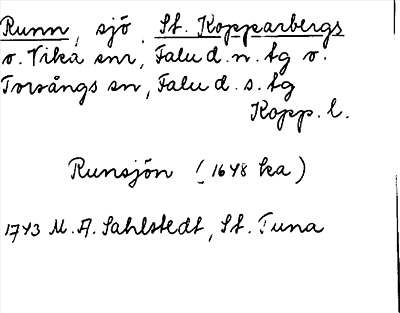 Runn, sjö, St. Kopparbergs
o. Vika snr, Falu d. n. tg o.
Torsångs sn, Falu d. s. tg
Kopp. l.
Runsjön (1648 ka)
1743 M. A. Sahlstedt, St. Tuna